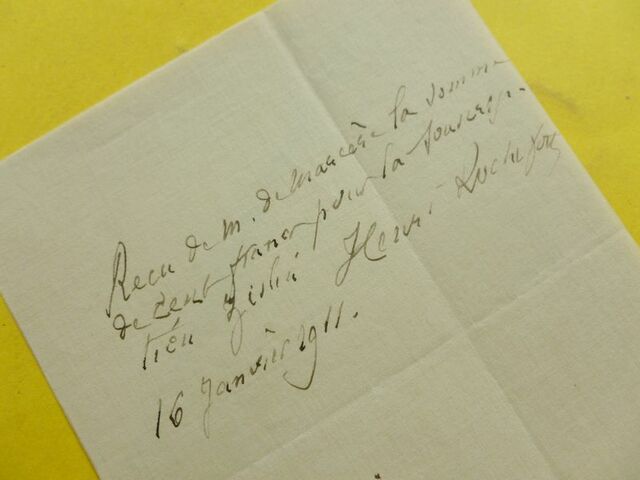 Recu de M. de la somme
de cent francs pour la souscrip-
tion Henri Rochefort
16 Janvier 1911.